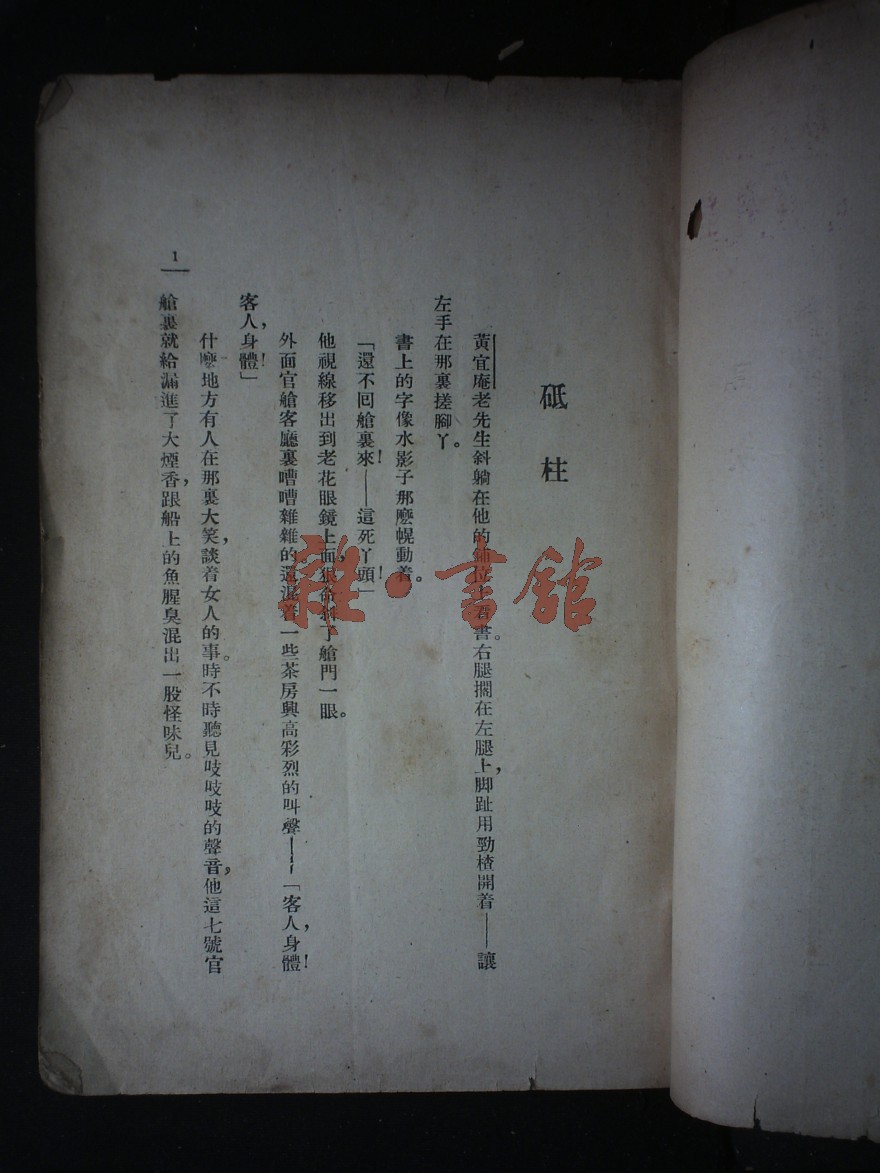 砥柱
黃宜庵老先生斜躺在他的鋪位上看書。右腿擱在左腿上，脚趾用勁楂開着——讓
左手在那裏搓腳丫。
書上的字像水影子那麽幌動着。
「還不回艙裏來！——這死丫頭！」
他視線移出到老花眼鏡上面，狠命刺了艙門一眼。
外面官艙客廳裏嘈嘈雜雜的，還混着一些茶房興高彩烈的叫聲——「客人，身體！
客人，身體！」
什麽地方有人在那裏大笑，談着女人的事。時不時聽見吱吱吱的聲音，他這七號官
艙裏就給漏進了大煙香，跟船上的魚腥臭混出一股怪味兒。
1
雜·書館